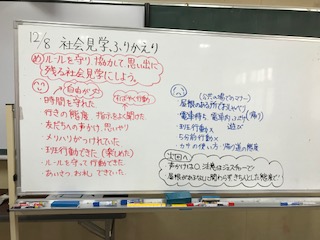 12/8 社会見学ふりかえり
め ルールを守り、協力して、思い出に
残る社会見学にしよう。
自由が大
すばやく行動
・時間を守れた
・行きの態度 指示をよく聞けた
・友だちへの声かけ、思いやり
・メリハリがつけれていた
・班行動できた (楽しめた)
・ルールを守って行動できた
・あいさつ お礼 できていた。
(公共の場でのマナー)
・屋根のある所
・電車待ち 電車内 (帰り)
遊び
・班行動×
・5分前行動×
・カサの使い方 帰り道の態度
次回へ
声かけは○ 注意はジェスチャーで
屋根があるなしに関わらずきちんとした態度で!